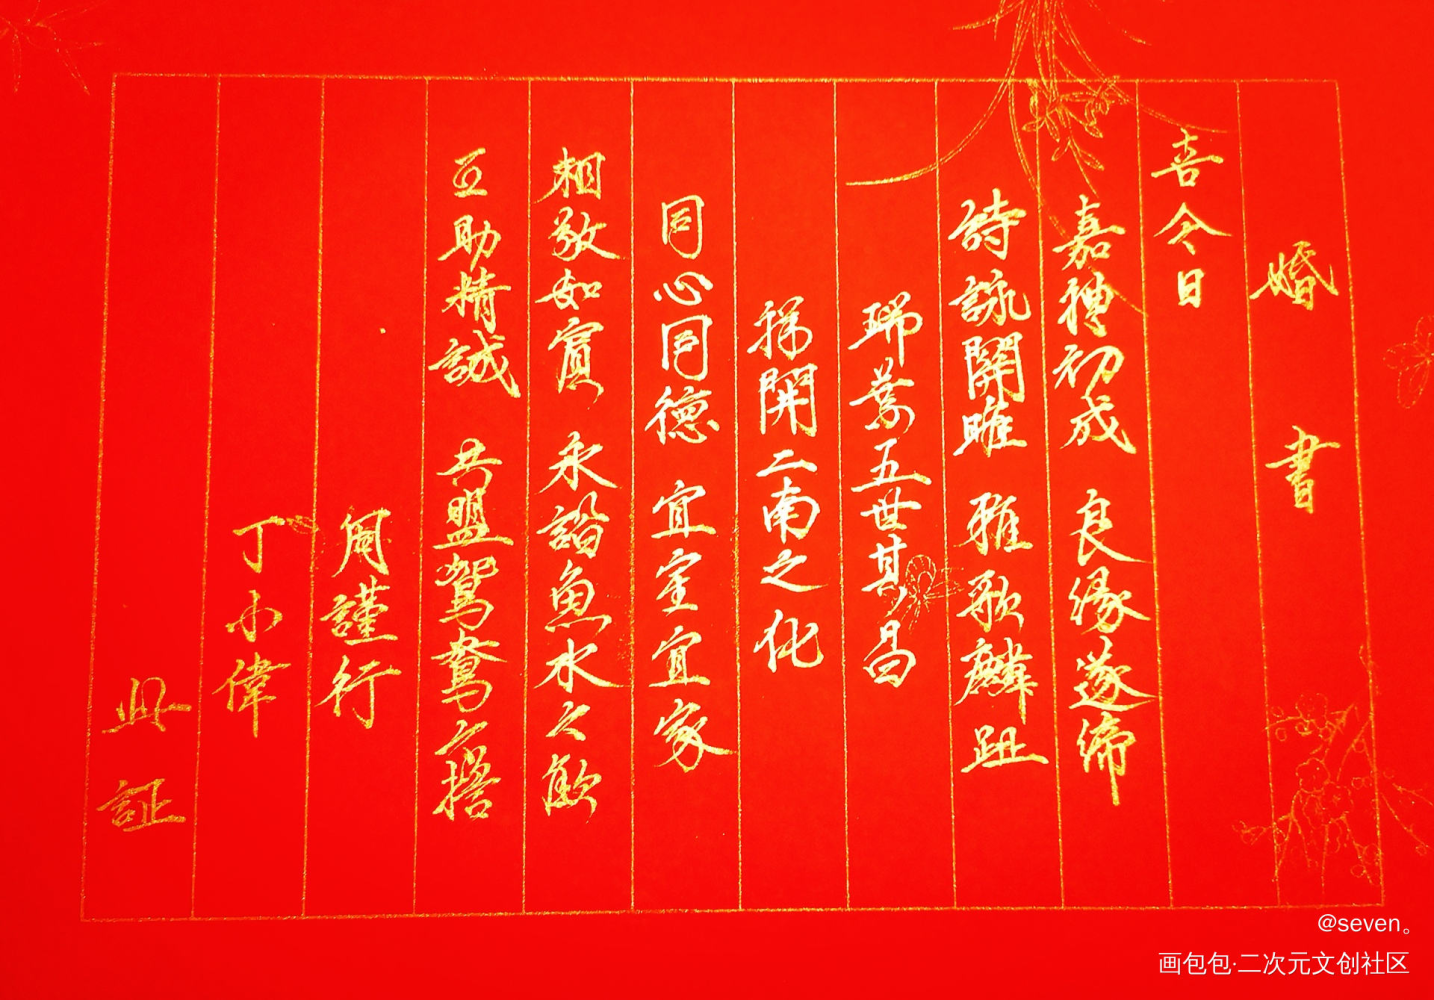 婚書
喜今日
嘉禮初成 良緣遂締
詩詠關雎 雅歌麟趾
瑞葉五世其昌
祥開二南之化
同心同德 宜室宜家
相敬如賓 永諧魚水之歡
互助精誠 共盟鴛鴦之誓
周謹行
丁小偉
此証
@seven。
画包包·二次元文创社区